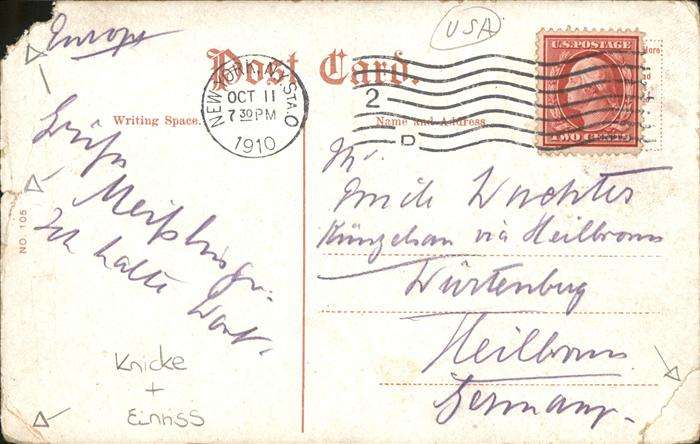 Europe
USA
Post Card.
U.S. POSTAGE
TWO CENTS
NEW YORK, N.Y. STA. O
OCT 11
7 30 PM
1910
2
D
Writing Space.
Name and Address.
NO. 105
Ich halte Wort.
Emile Wachter
Künzelsau via Heilbronn
Würtenburg
Heilbronn
Germany.
Knicke
+
Einriss